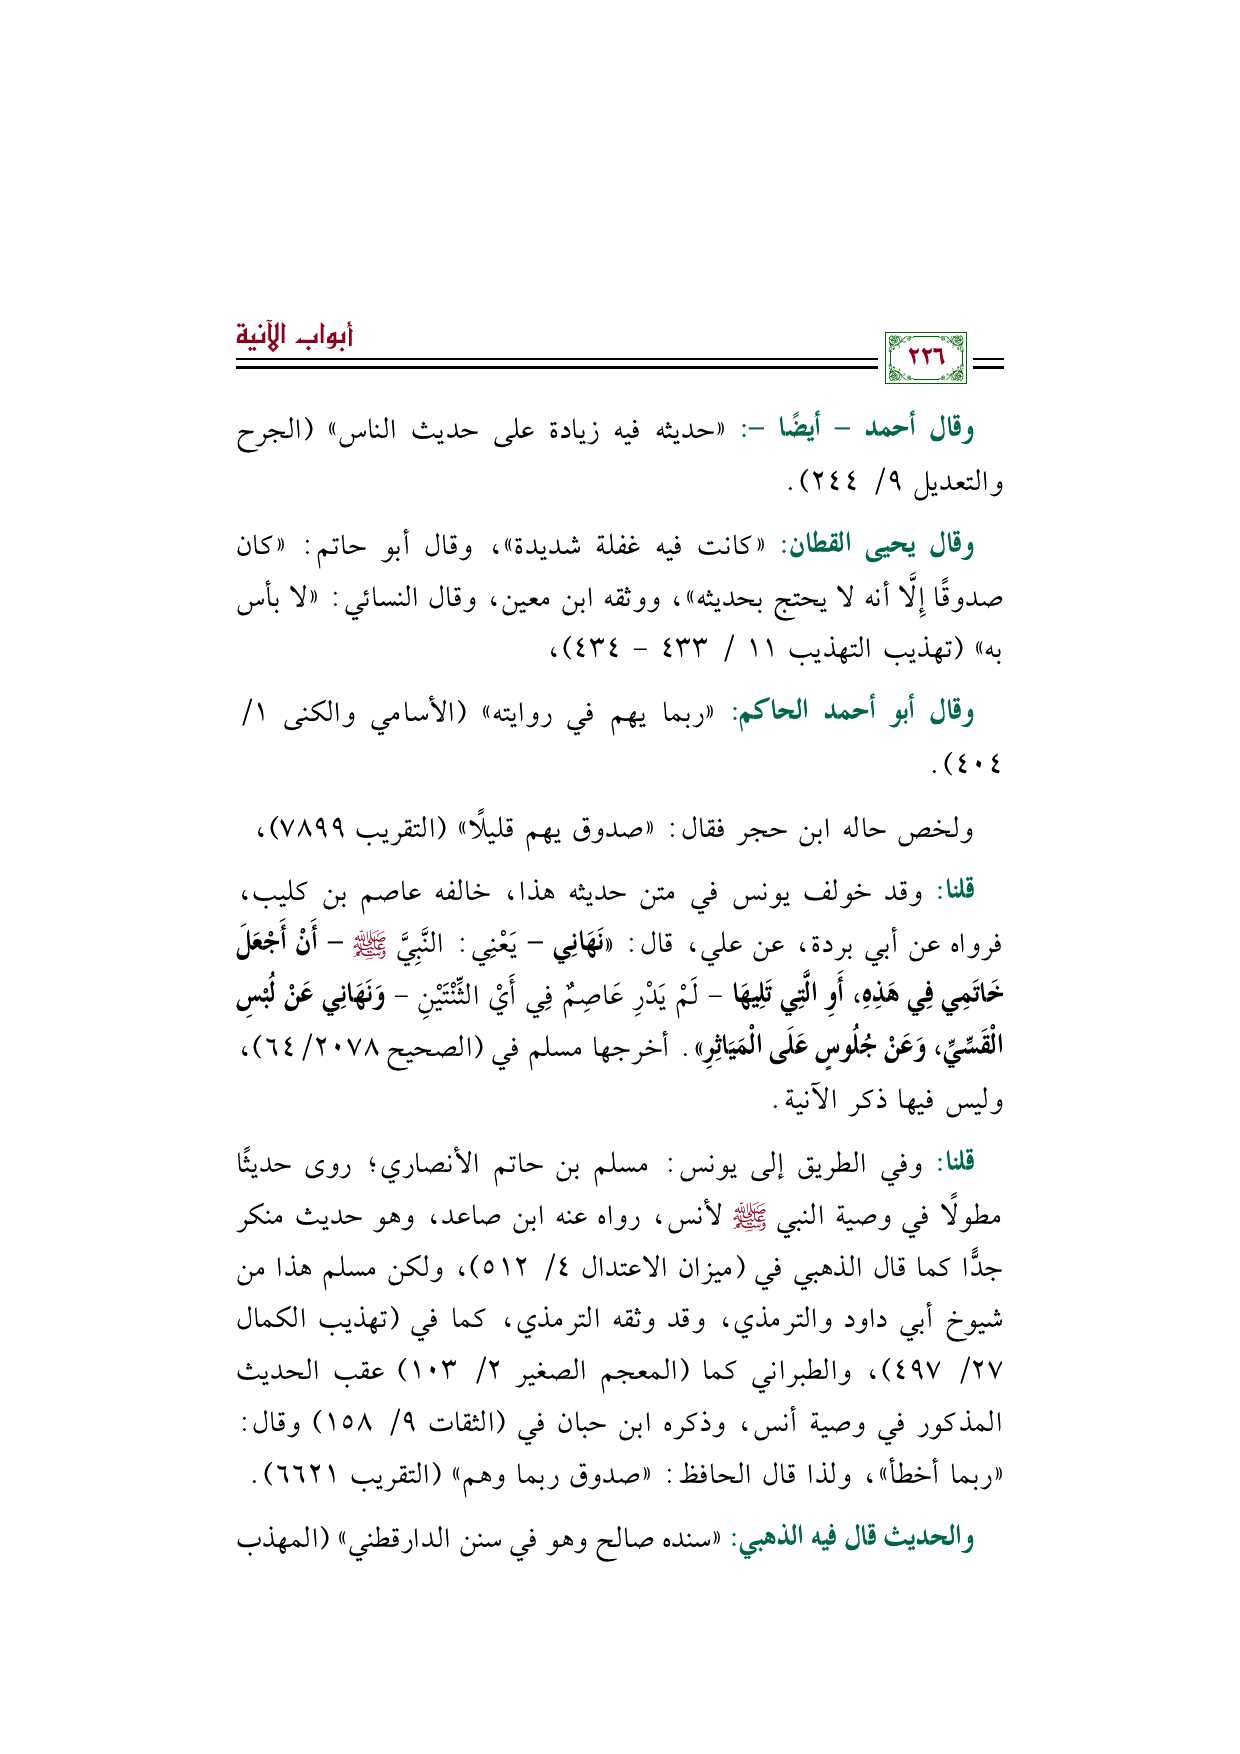 أبواب الآنية
٢٢٦
وقال أحمد - أيضًا -: «حديثه فيه زيادة على حديث الناس» (الجرح
والتعديل ٩/ ٢٤٤).
وقال يحيى القطان: «كانت فيه غفلة شديدة»، وقال أبو حاتم: «كان
صدوقًا إِلَّا أنه لا يحتج بحديثه»، ووثقه ابن معين، وقال النسائي: «لا بأس
به» (تهذيب التهذيب ١١ / ٤٣٣ - ٤٣٤)،
وقال أبو أحمد الحاكم: «ربما يهم في روايته» (الأسامي والكنى ١/
٤٠٤).
ولخص حاله ابن حجر فقال: «صدوق يهم قليلًا» (التقريب ٧٨٩٩)،
قلنا: وقد خولف يونس في متن حديثه هذا، خالفه عاصم بن كليب،
فرواه عن أبي بردة، عن علي، قال: «نَهَانِي - يَعْنِي: النَّبِيَّ ﷺ - أَنْ أَجْعَلَ
خَاتَمِي فِي هَذِهِ، أَوِ الَّتِي تَلِيهَا - لَمْ يَدْرِ عَاصِمٌ فِي أَيْ الثِّنْتَيْنِ - وَنَهَانِي عَنْ لُبْسِ
الْقَسِّيِّ، وَعَنْ جُلُوسٍ عَلَى الْمَيَاثِرِ». أخرجها مسلم في (الصحيح ٢٠٧٨/ ٦٤)،
وليس فيها ذكر الآنية.
قلنا: وفي الطريق إلى يونس: مسلم بن حاتم الأنصاري؛ روى حديثًا
مطولًا في وصية النبي ﷺ لأنس، رواه عنه ابن صاعد، وهو حديث منكر
جدًّا كما قال الذهبي في (ميزان الاعتدال ٤/ ٥١٢)، ولكن مسلم هذا من
شيوخ أبي داود والترمذي، وقد وثقه الترمذي، كما في (تهذيب الكمال
٢٧/ ٤٩٧)، والطبراني كما (المعجم الصغير ٢/ ١٠٣) عقب الحديث
المذكور في وصية أنس، وذكره ابن حبان في (الثقات ٩/ ١٥٨) وقال:
«ربما أخطأ»، ولذا قال الحافظ: «صدوق ربما وهم» (التقريب ٦٦٢١).
والحديث قال فيه الذهبي: «سنده صالح وهو في سنن الدارقطني» (المهذب